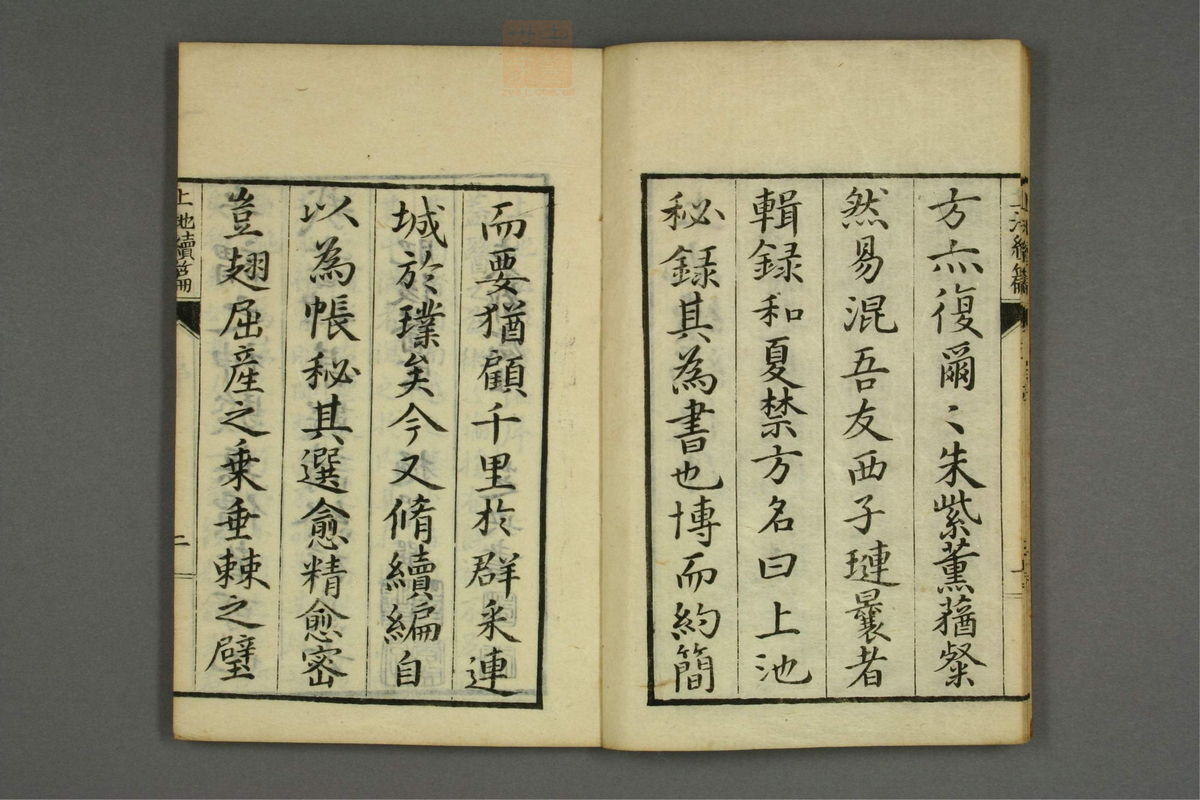 方亦復爾〻朱紫薰蕕粲
然易混吾友西子璉曩者
輯録和夏禁方名曰上池
秘録其為書也博而約簡
而要猶顧千里於群采連
城於璞矣今又脩續編自
以為帳秘其選愈精愈密
豈翅屈産之乗垂棘之璧
上池續編
二